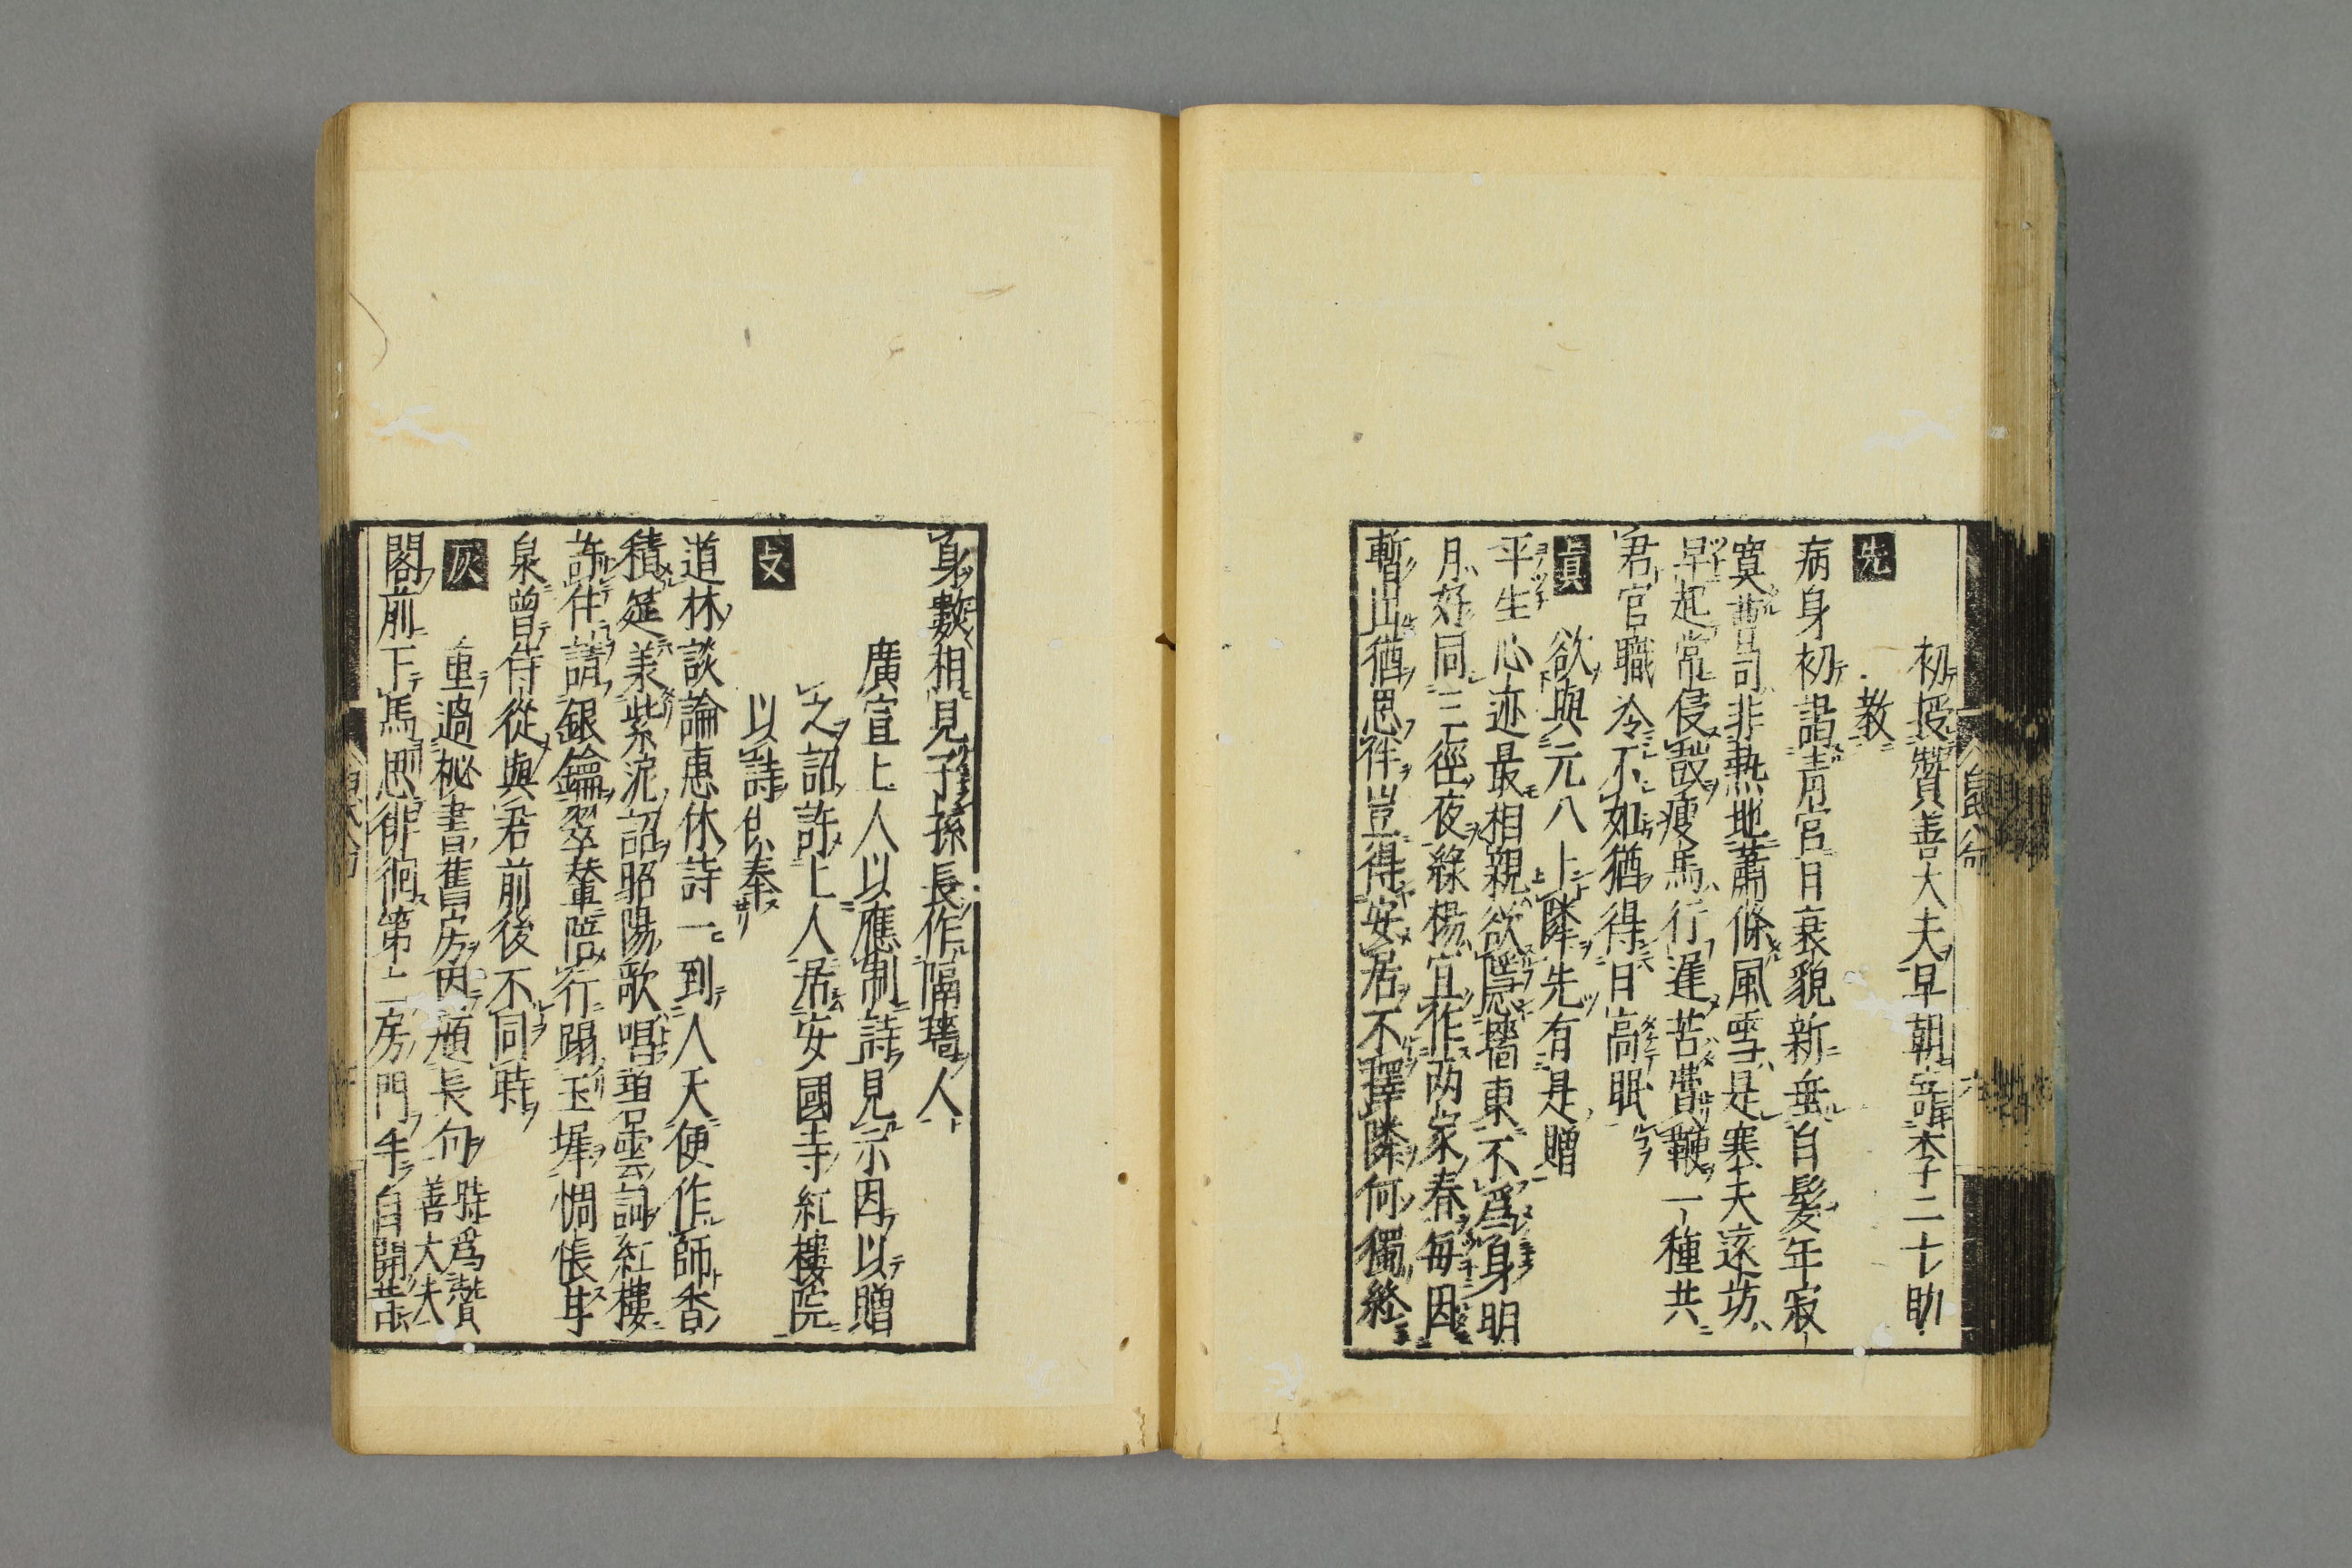 初授贊善大夫早朝寄李二十助
教
先
病身初謁青宮日衰貌新垂白髮年寂
寞曹司非熱地蕭條風雪是寒天遠坊
早起常侵鼓瘦馬行遲苦費鞭一種共
君官職冷不如猶得日高眠
眞
欲與元八上隣先有是贈
平生心迹最相親欲隱墻東不爲身明
月好同三徑夜綠楊宜作两家春每因
暫出猶思伴豈得安居不擇隣何獨終
身數相見子孫長作隔墻人
廣宣上人以應制詩見示因以贈
之詔許上人居安國寺紅樓院
以詩供奉
支
道林談論惠休詩一到人天便作師香
積筵承紫泥詔昭陽歌唱碧雲詞紅樓
許住請銀鑰翠輦陪行蹋玉墀惆悵甘
泉曾侍從與君前後不同時
灰
重過秘書舊房因題長句
時爲贊
善大夫
閣前下馬思徘徊第二房門手自開昔